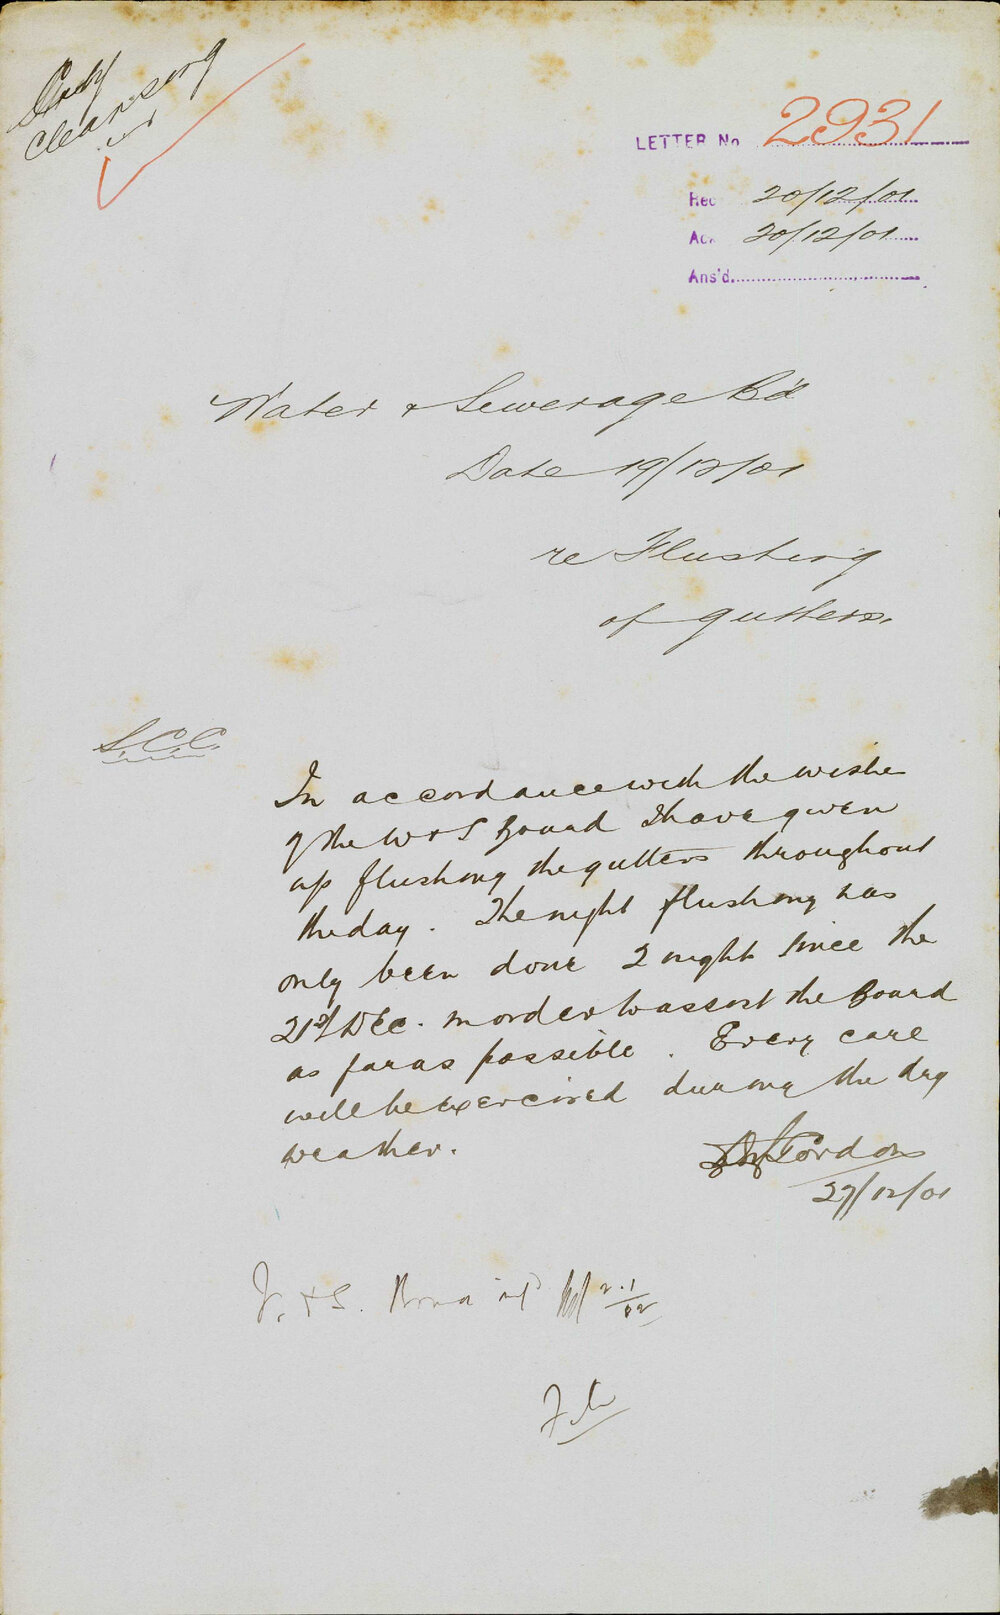 City
Cleansing
LETTER No 2931
Rec 20/12/01
Ac. 20/12/01
Ans'd
Water & Sewerage B'd
Date 19/12/01
re Flushing
of gutters.
S.C.C.
In accordance with the wishes
of the W & S Board I have given
up flushing the gutters throughout
the day. The night flushing has
only been done 2 night since the
21st Dec. in order to assist the Board
as far as possible. Every care
will be exercised during the dry
weather.
Gordon
27/12/01
& S. Board inf'd 2.1/02
File